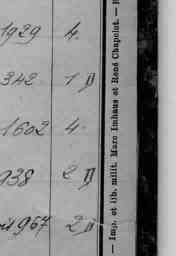 1929 4.
342 1
1602 4.
938 2
967 2
— Imp. et lib. milit. Marc Imhaus et René Chapelot. —